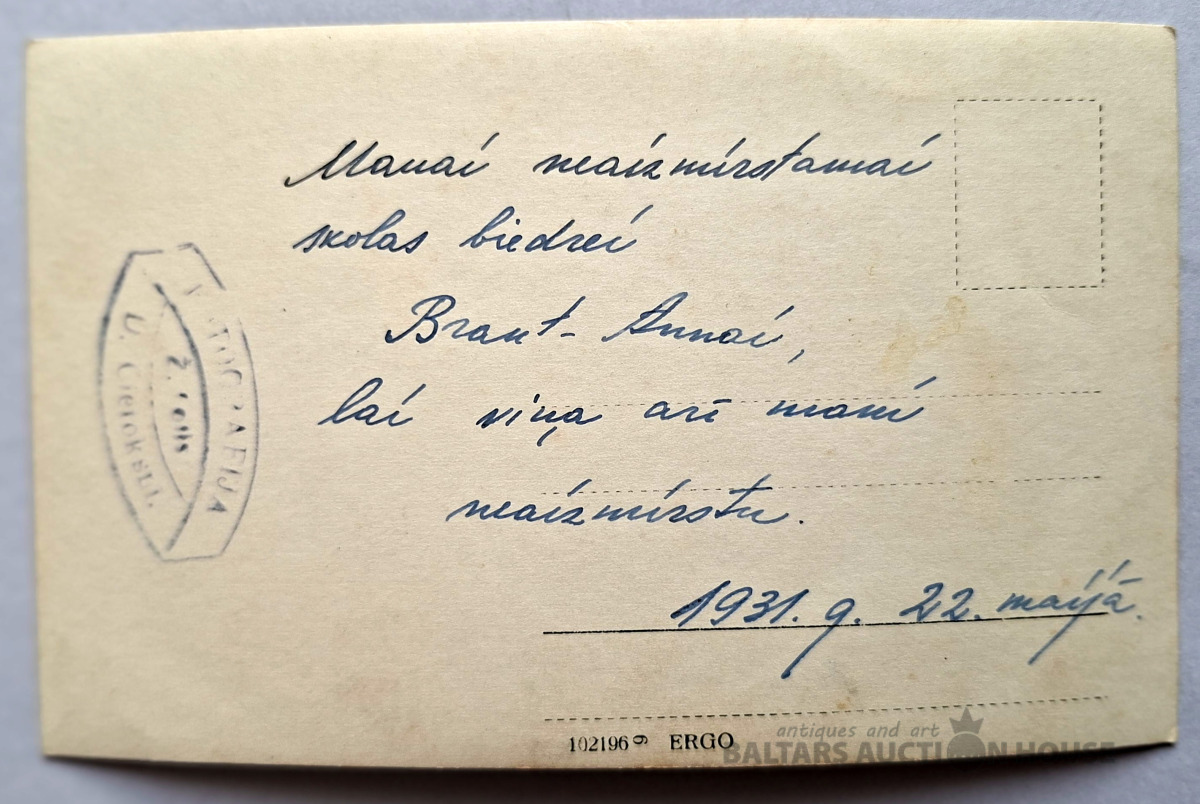 Manai neaizmirstamai
skolas biedrei
Brant- Annai,
lai viņa arī mani
neaizmirstu.
1931. g. 22. maijā.
FOTOGRAFIJA
102196 ERGO
antiques and art
BALTARS AUCTION HOUSE